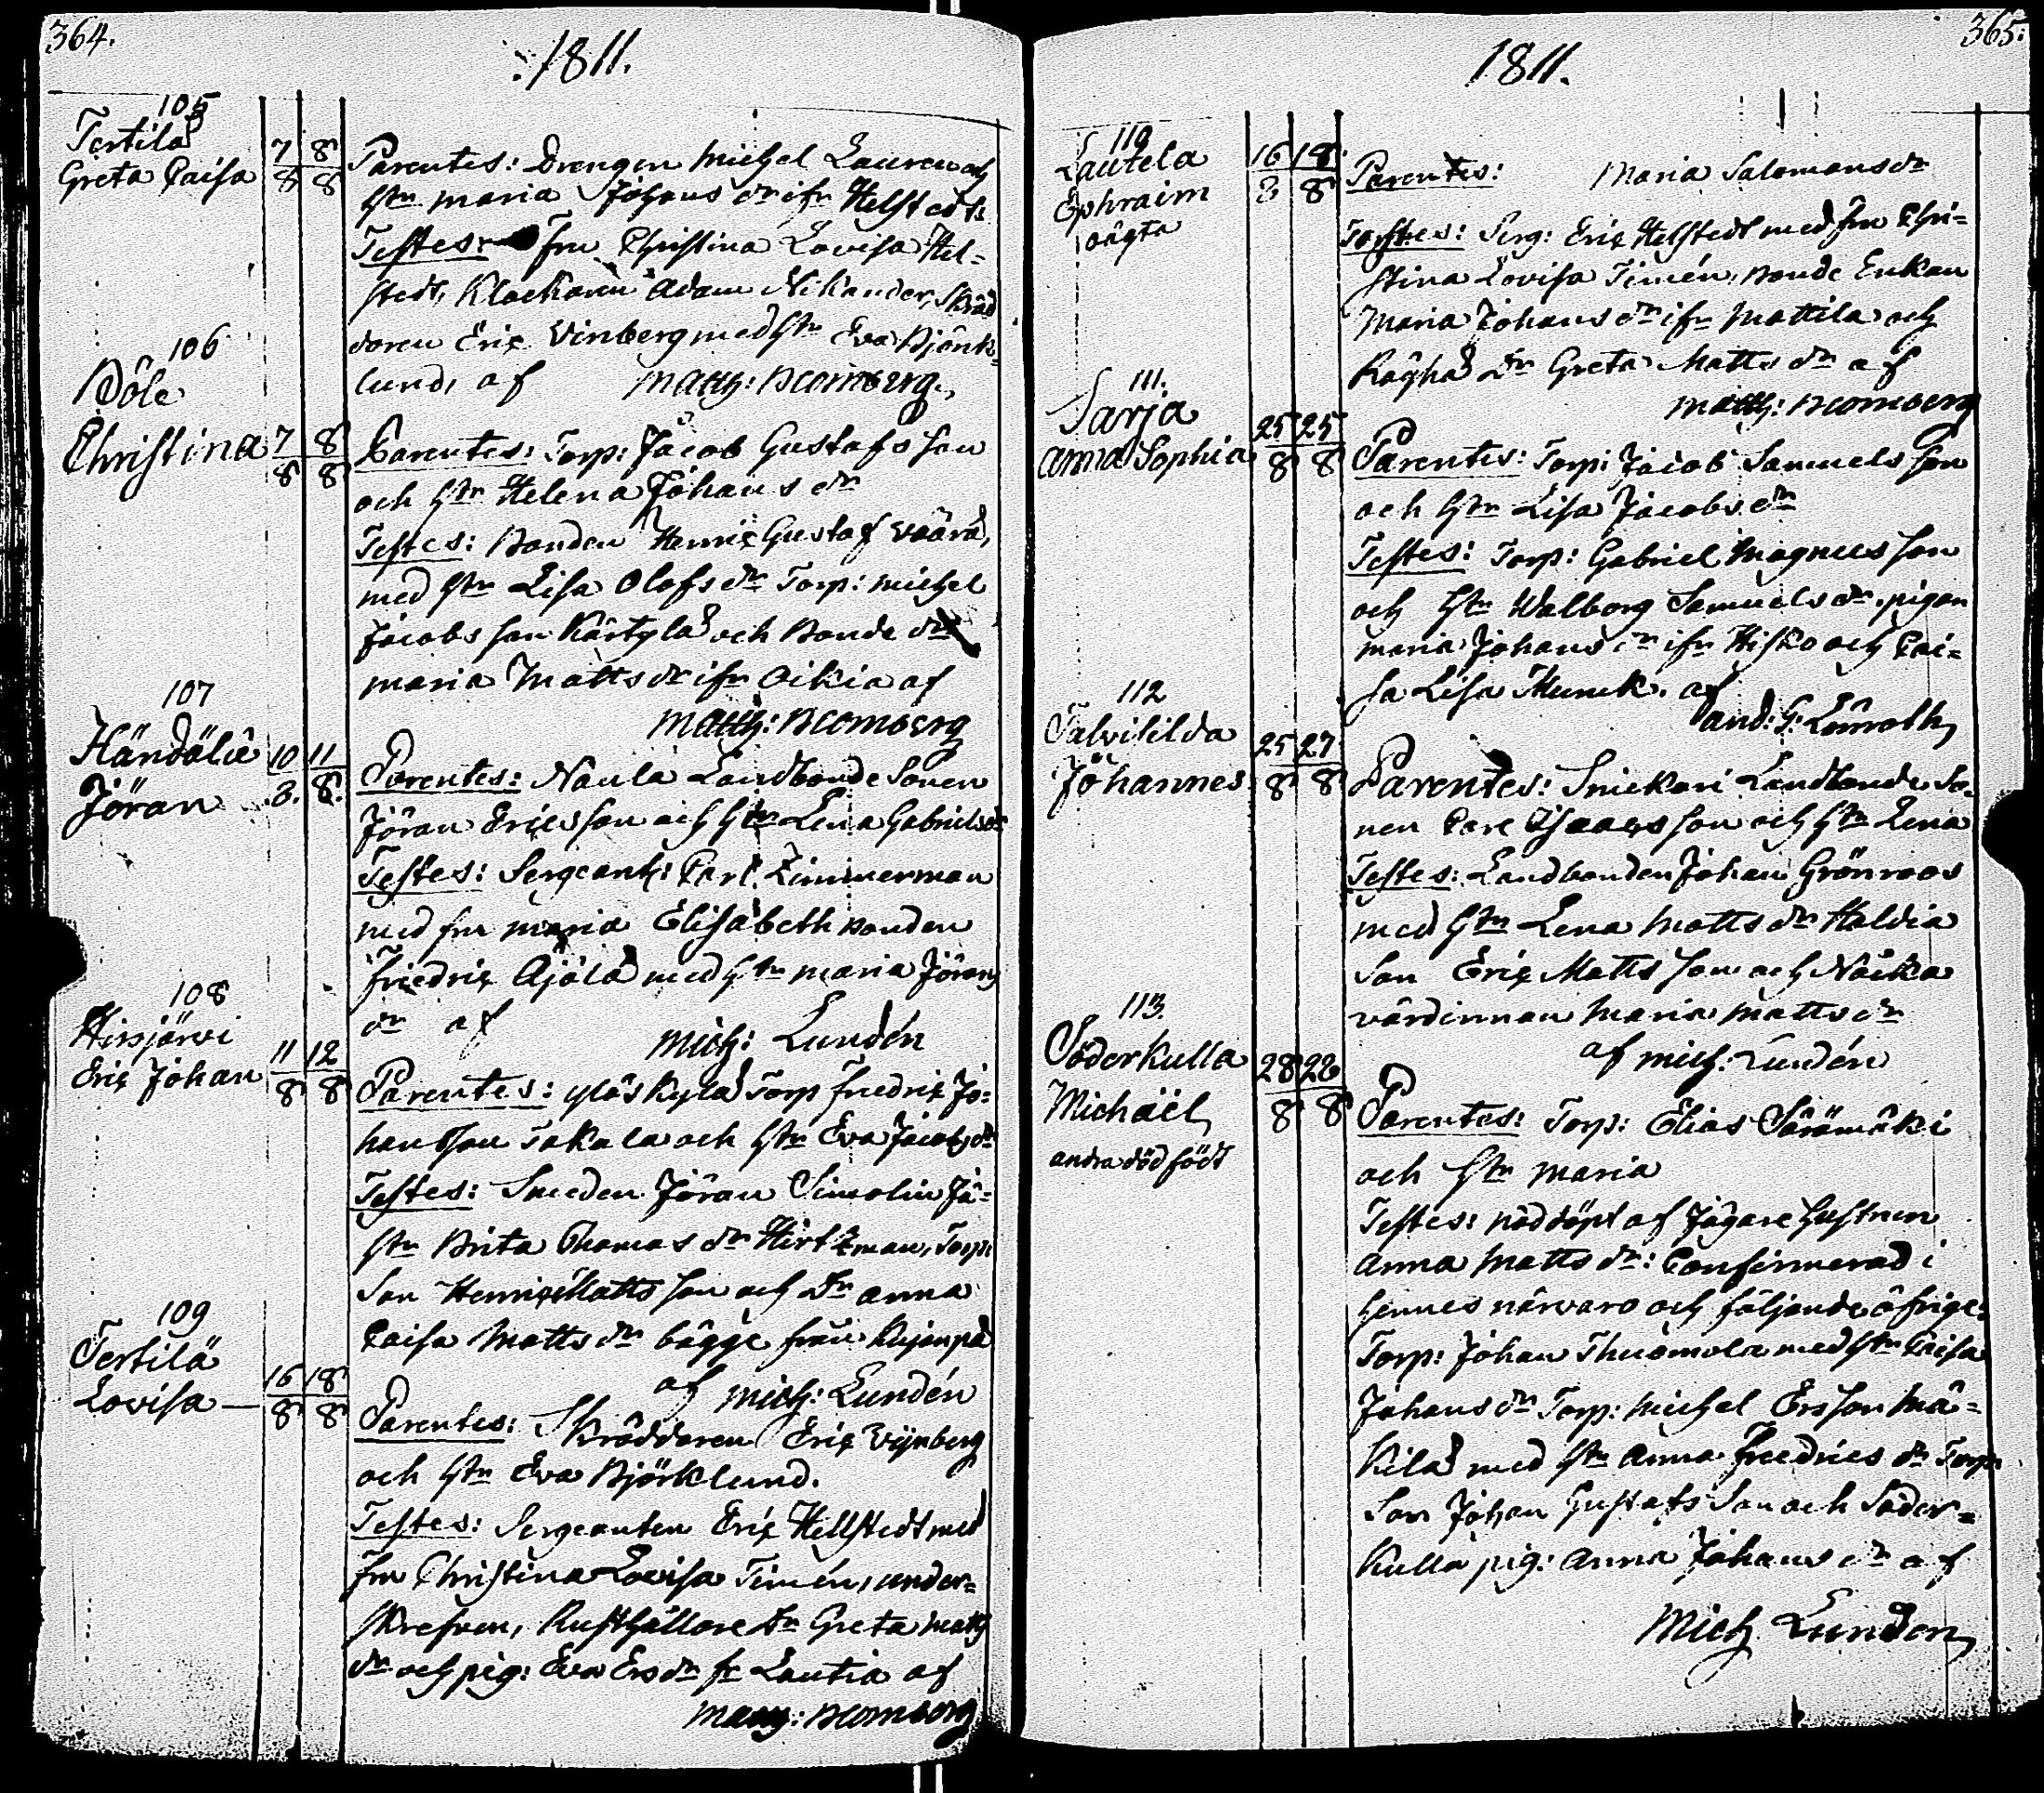 364.
1811.
105
Tertilä
Greta Caisa
7 8
8 8
Parentes: Drengen Michel Lauren och
hstn Maria Johans dr ifr Helstedt.
Testes: Fru Christina Lovisa Hel-
stedt, Klockaren Adam Nikander, Skräd
daren Eric Vinberg med hstn Eva Björk-
lund, af Matth: Blomberg.
106
Böle
Christina
7 8
8 8
Parentes: Torp: Jacob Gustafsson
och hstn Helena Johans dr
Testes: Bonden Henric Gustaf Väärä,
med hstn Lisa Olofs dr Torp: Michel
Jacobsson Kärtylä och Bonde dr
Maria Matts dr ifr Oikia af
Matth: Blomberg
107
Händölä
Jöran
10 11
8. 8.
Parentes: Naula Landbonde Sonen
Jöran Ericsson och hstn Lena Gabriels dr
Testes: Sergeant: Carl Zimmerman
med fru Maria Elisabeth Bonden
Friedric Äjälä med hstn Maria Jörans
dr af Mich: Lundén
108
Hirsjärvi
Eric Johan
11 12
8 8
Parentes: Yläskylä Torp Fredric Jo-
hansson Takala och hstn Eva Jacobs dr
Testes: Smeden Jöran Simolin
hstn Brita Thomas dr Hirtzman, Torp:
Son Henric Mattsson och Dr Anna
Caisa Matts dr bägge från Kujanpä
af Mich: Lundén
109
Tertilä
Lovisa —
16 18
8 8
Parentes: Skräddaren Eric Vijnberg
och hstn Eva Björklund.
Testes: Sergeanten Eric Hellstedt med
fru Christina Lovisa Timén, under-
skrefven, Rusthållare dr Greta Matts
dr och pig: Eva Ers dr fr Lautia af
Matth: Blomberg
365.
1811.
110
Lautela
Ephraim
oägta
16 18
8 8
Parentes: Maria Salomans dr
Testes: Serg: Eric Helstedt med fru Chri-
stina Lovisa Timén, Bonde Enkan
Maria Johans dr ifr Mattila och
Rågha Dr Greta Matts dr af
Matth: Blomberg
111.
Sarja
Anna Sophia
25 25
8 8
Parentes: Torp: Jacob Samuelsson
och hstn Lisa Jacobs dr
Testes: Torp: Gabriel Magnusson
och hstn Walborg Samuels dr. pigan
Maria Johans dr ifr Hisko och Cai-
sa Lisa Munck. af
And: G: Lönroth
112
Talvitilda
Johannes
25 27
8 8
Parentes: Snickari Landbonde So-
nen Carl Isaacsson och hstn Lena
Testes: Landbonden Johan Grönroos
med hstn Lena Matts dr Haldia
Son Eric Mattsson och Näckä
värdinnan Maria Matts dr
af Mich: Lundén
113.
Söderkulla
Michaël
andra dödfödt
28 28
8 8
Parentes: Torp: Elias Särämäki
och hstn Maria
Testes: nöddöpt af Jägare hustrun
Anna Matts dr: Confirmerad i
hennes närvaro och följande öfrige:
Torp: Johan Thuomola med hstn Caisa
Johans dr Torp: Michel Ersson Mä-
kilä med hstn Anna Fredrics dr Torp:
Son Johan Gustafs Son och Söder-
kulla pig: Anna Johans dr af
Mich Lundén